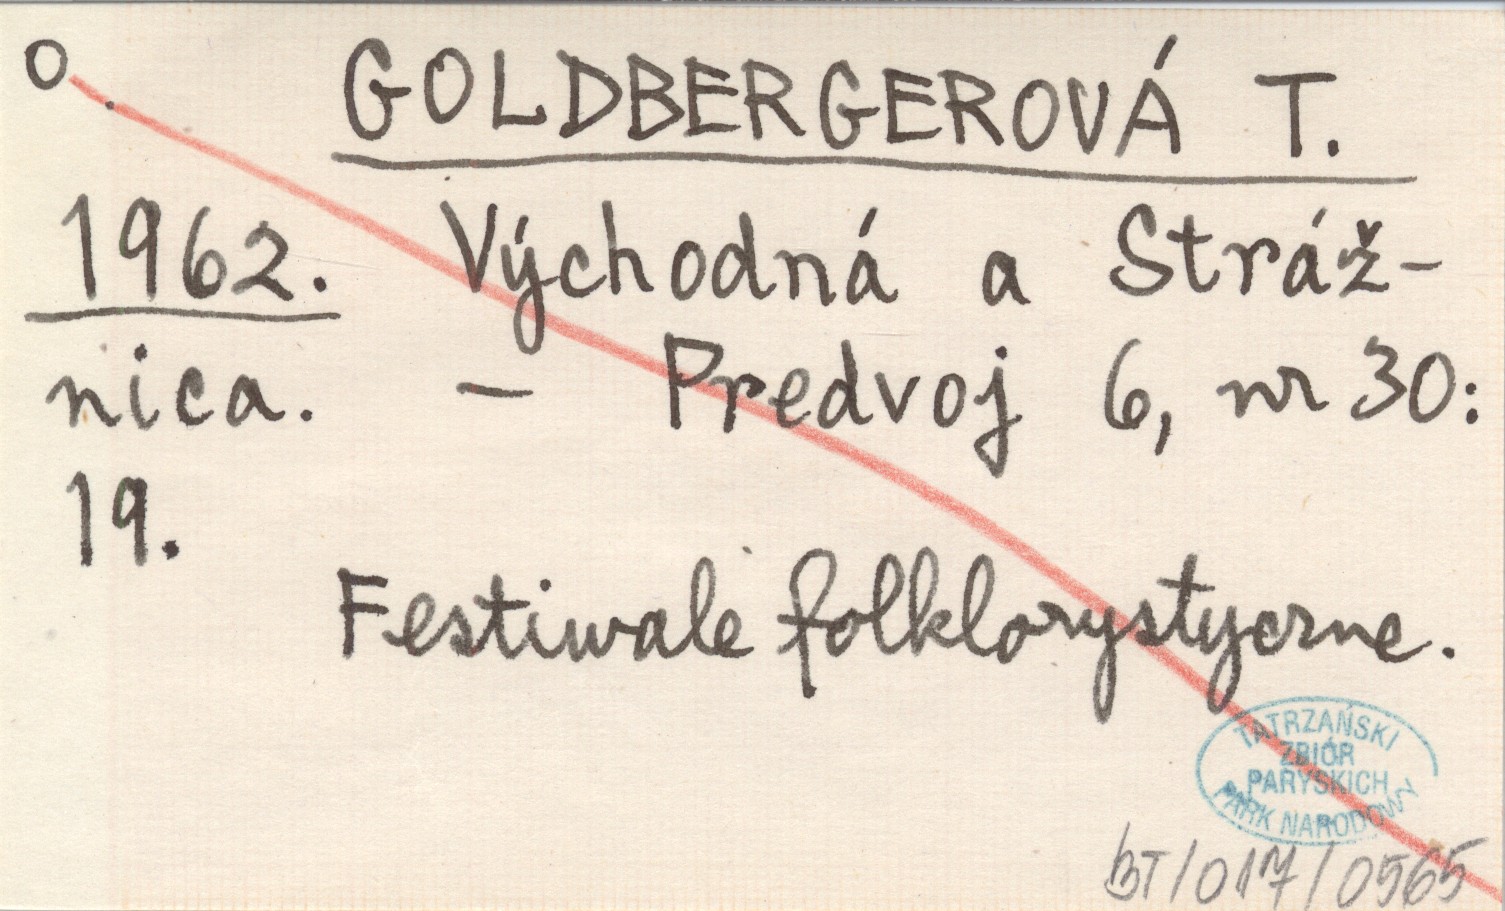 O.
GOLDBERGEROVÁ T.
1962. Východná a Stráž-
nica. – Predvoj 6, nr 30:
19.
Festiwale folklorystyczne.
TATRZAŃSKI
ZBIÓR
PARYSKICH
PARK NARODOWY
BT/017/0565